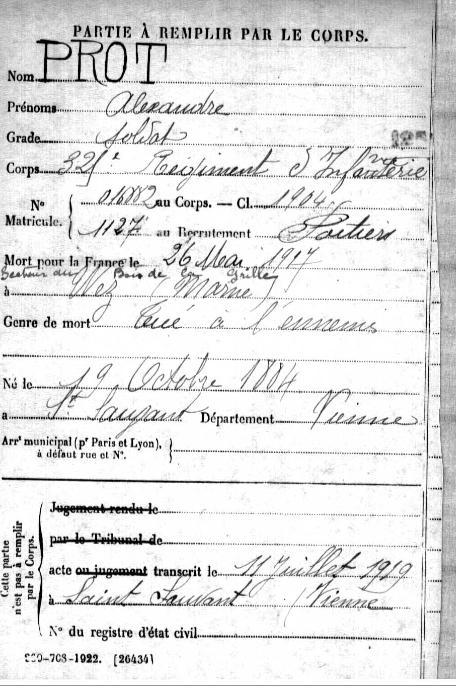 PARTIE À REMPLIR PAR LE CORPS.
Nom PROT
Prénoms Alexandre
Grade Soldat
Corps 325e Régiment d'Infanterie
N° Matricule. { 016882 au Corps. — Cl. 1904
1127 au Recrutement Poitiers
Mort pour la France le 26 Mai 1917
Secteur du Bois de la Grille
à Wez (Marne)
Genre de mort tué à l'ennemi
Né le 19 Octobre 1884
à St Sauvant Département Vienne
Arrt municipal (pr Paris et Lyon), à défaut rue et N°. }
Cette partie n'est pas à remplir par le Corps.
Jugement rendu le
par le Tribunal de
acte ou jugement transcrit le 11 Juillet 1919
à Saint Sauvant (Vienne)
N° du registre d'état civil
[26434]